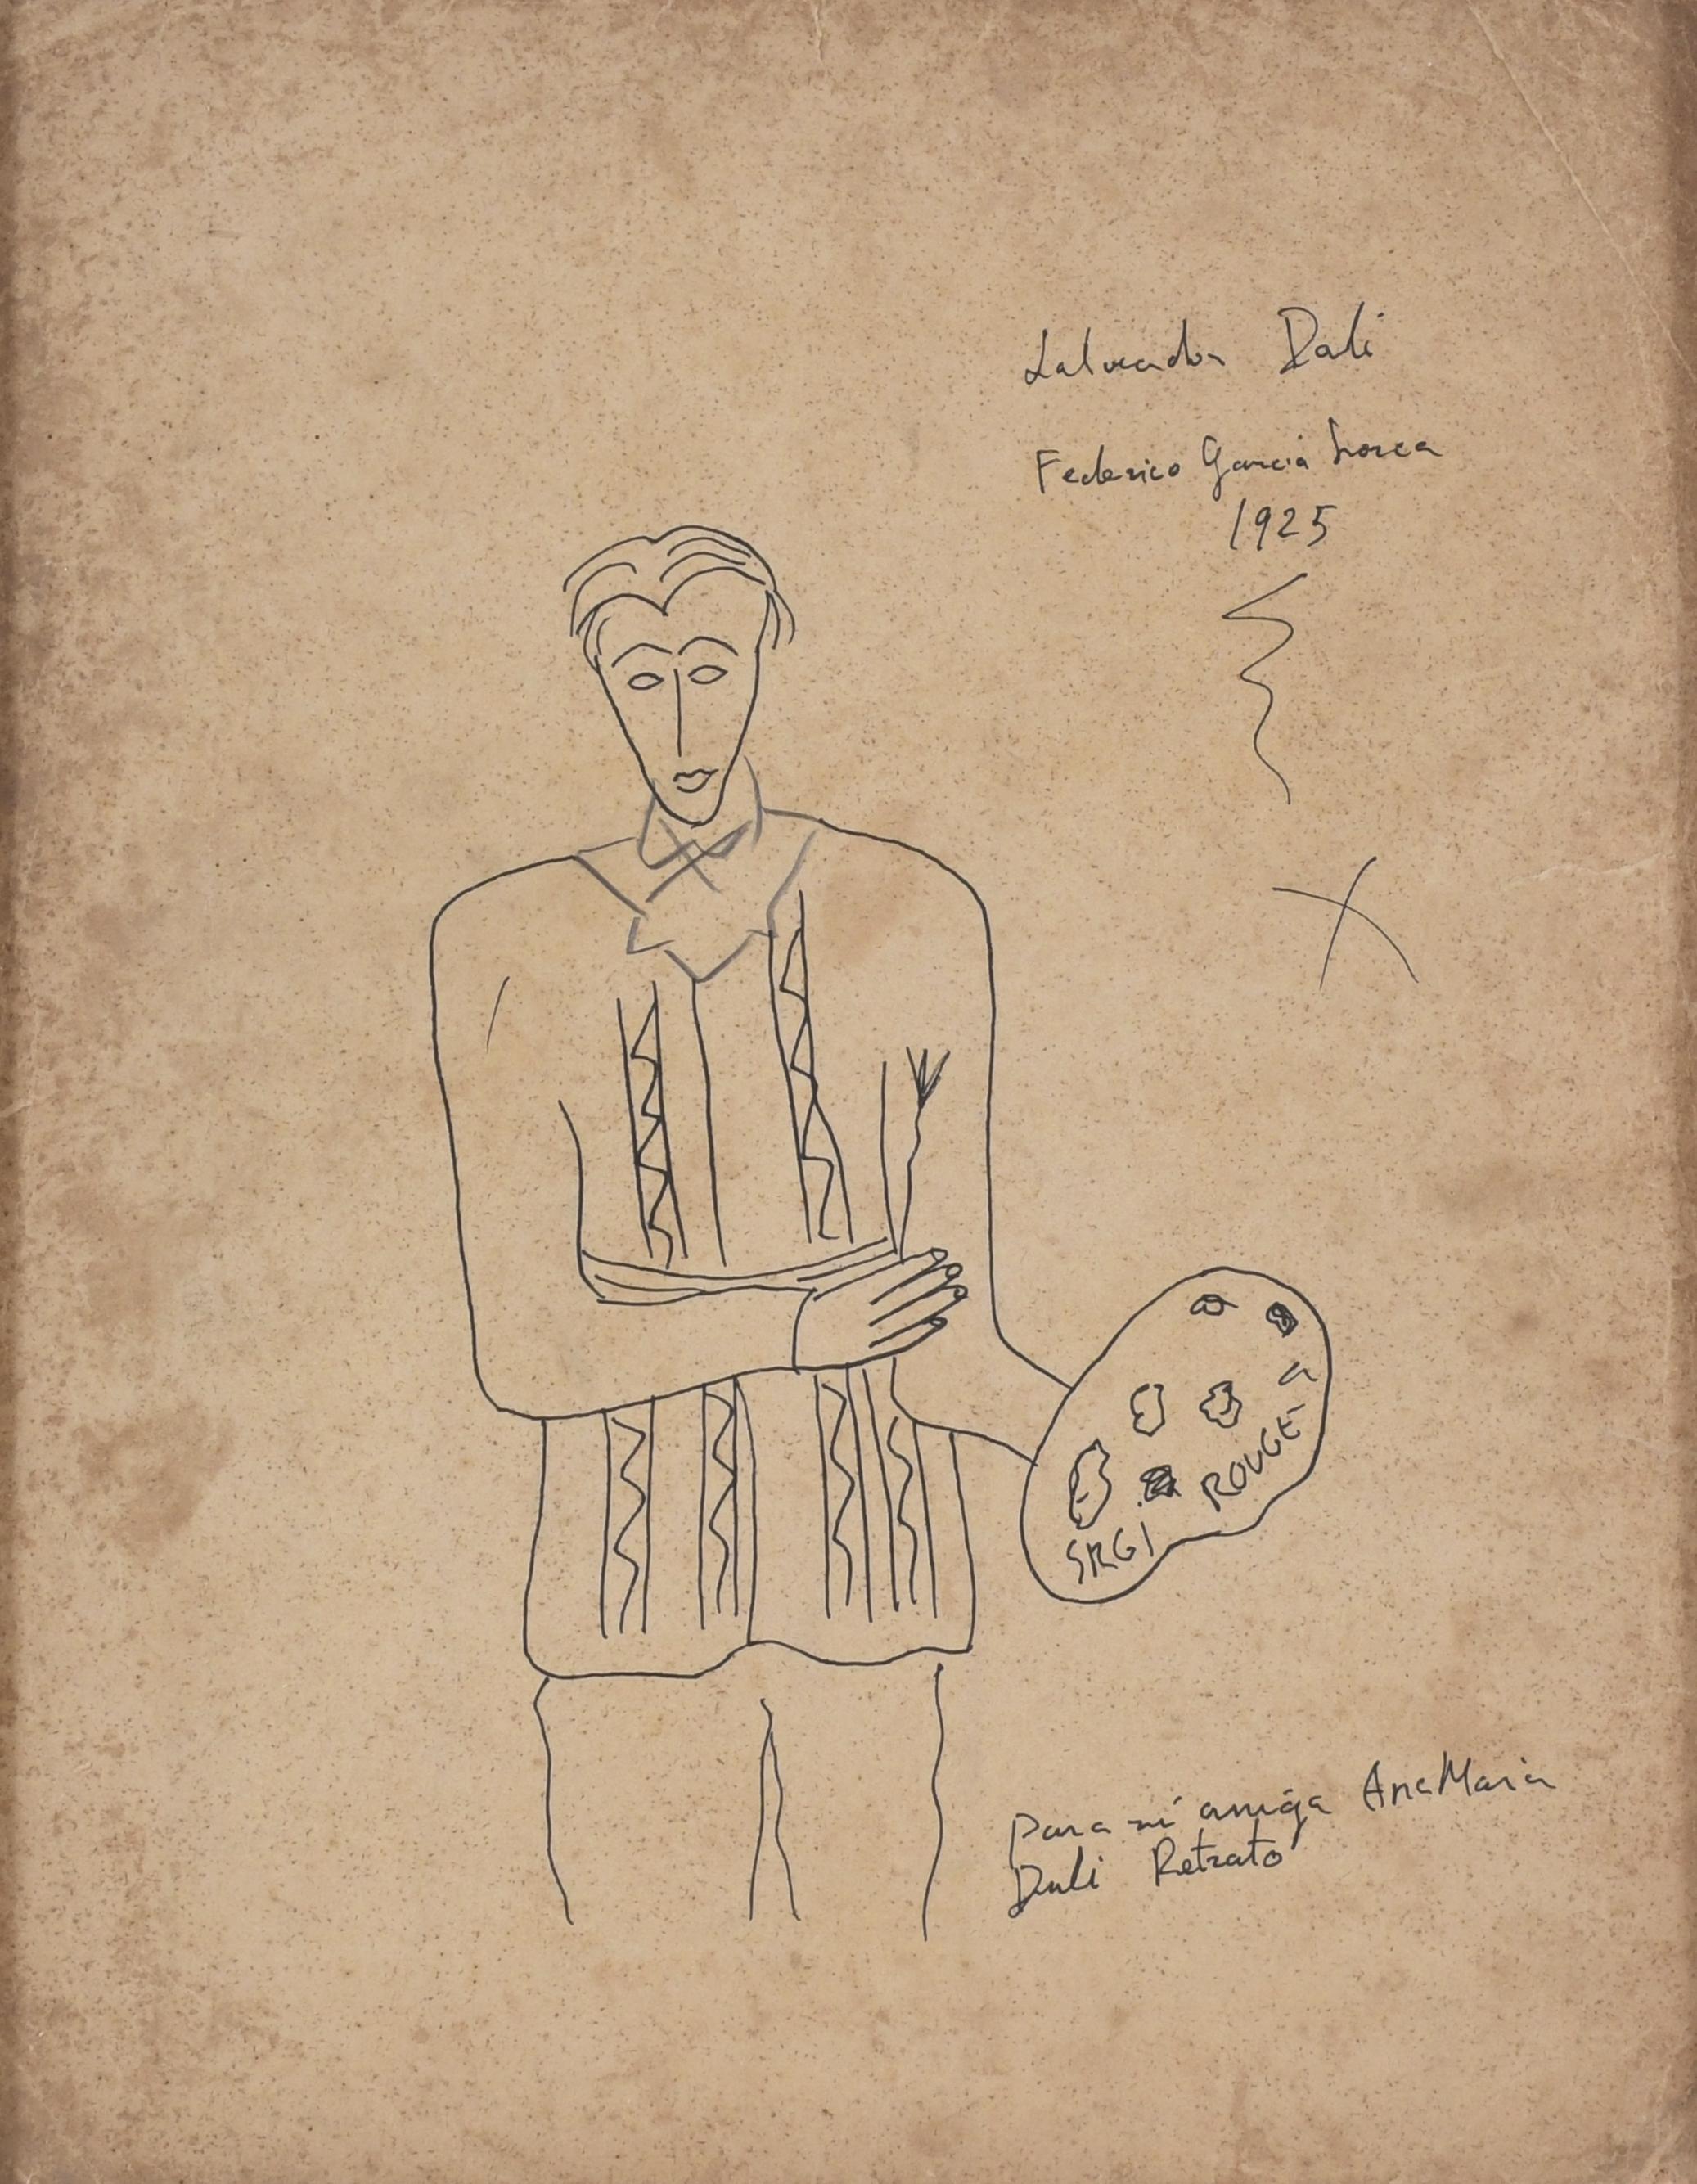 Salvador Dali
Federico García Lorca
1925
ROUGE
SRGI
para mi amiga Ana Maria
Dali Retrato